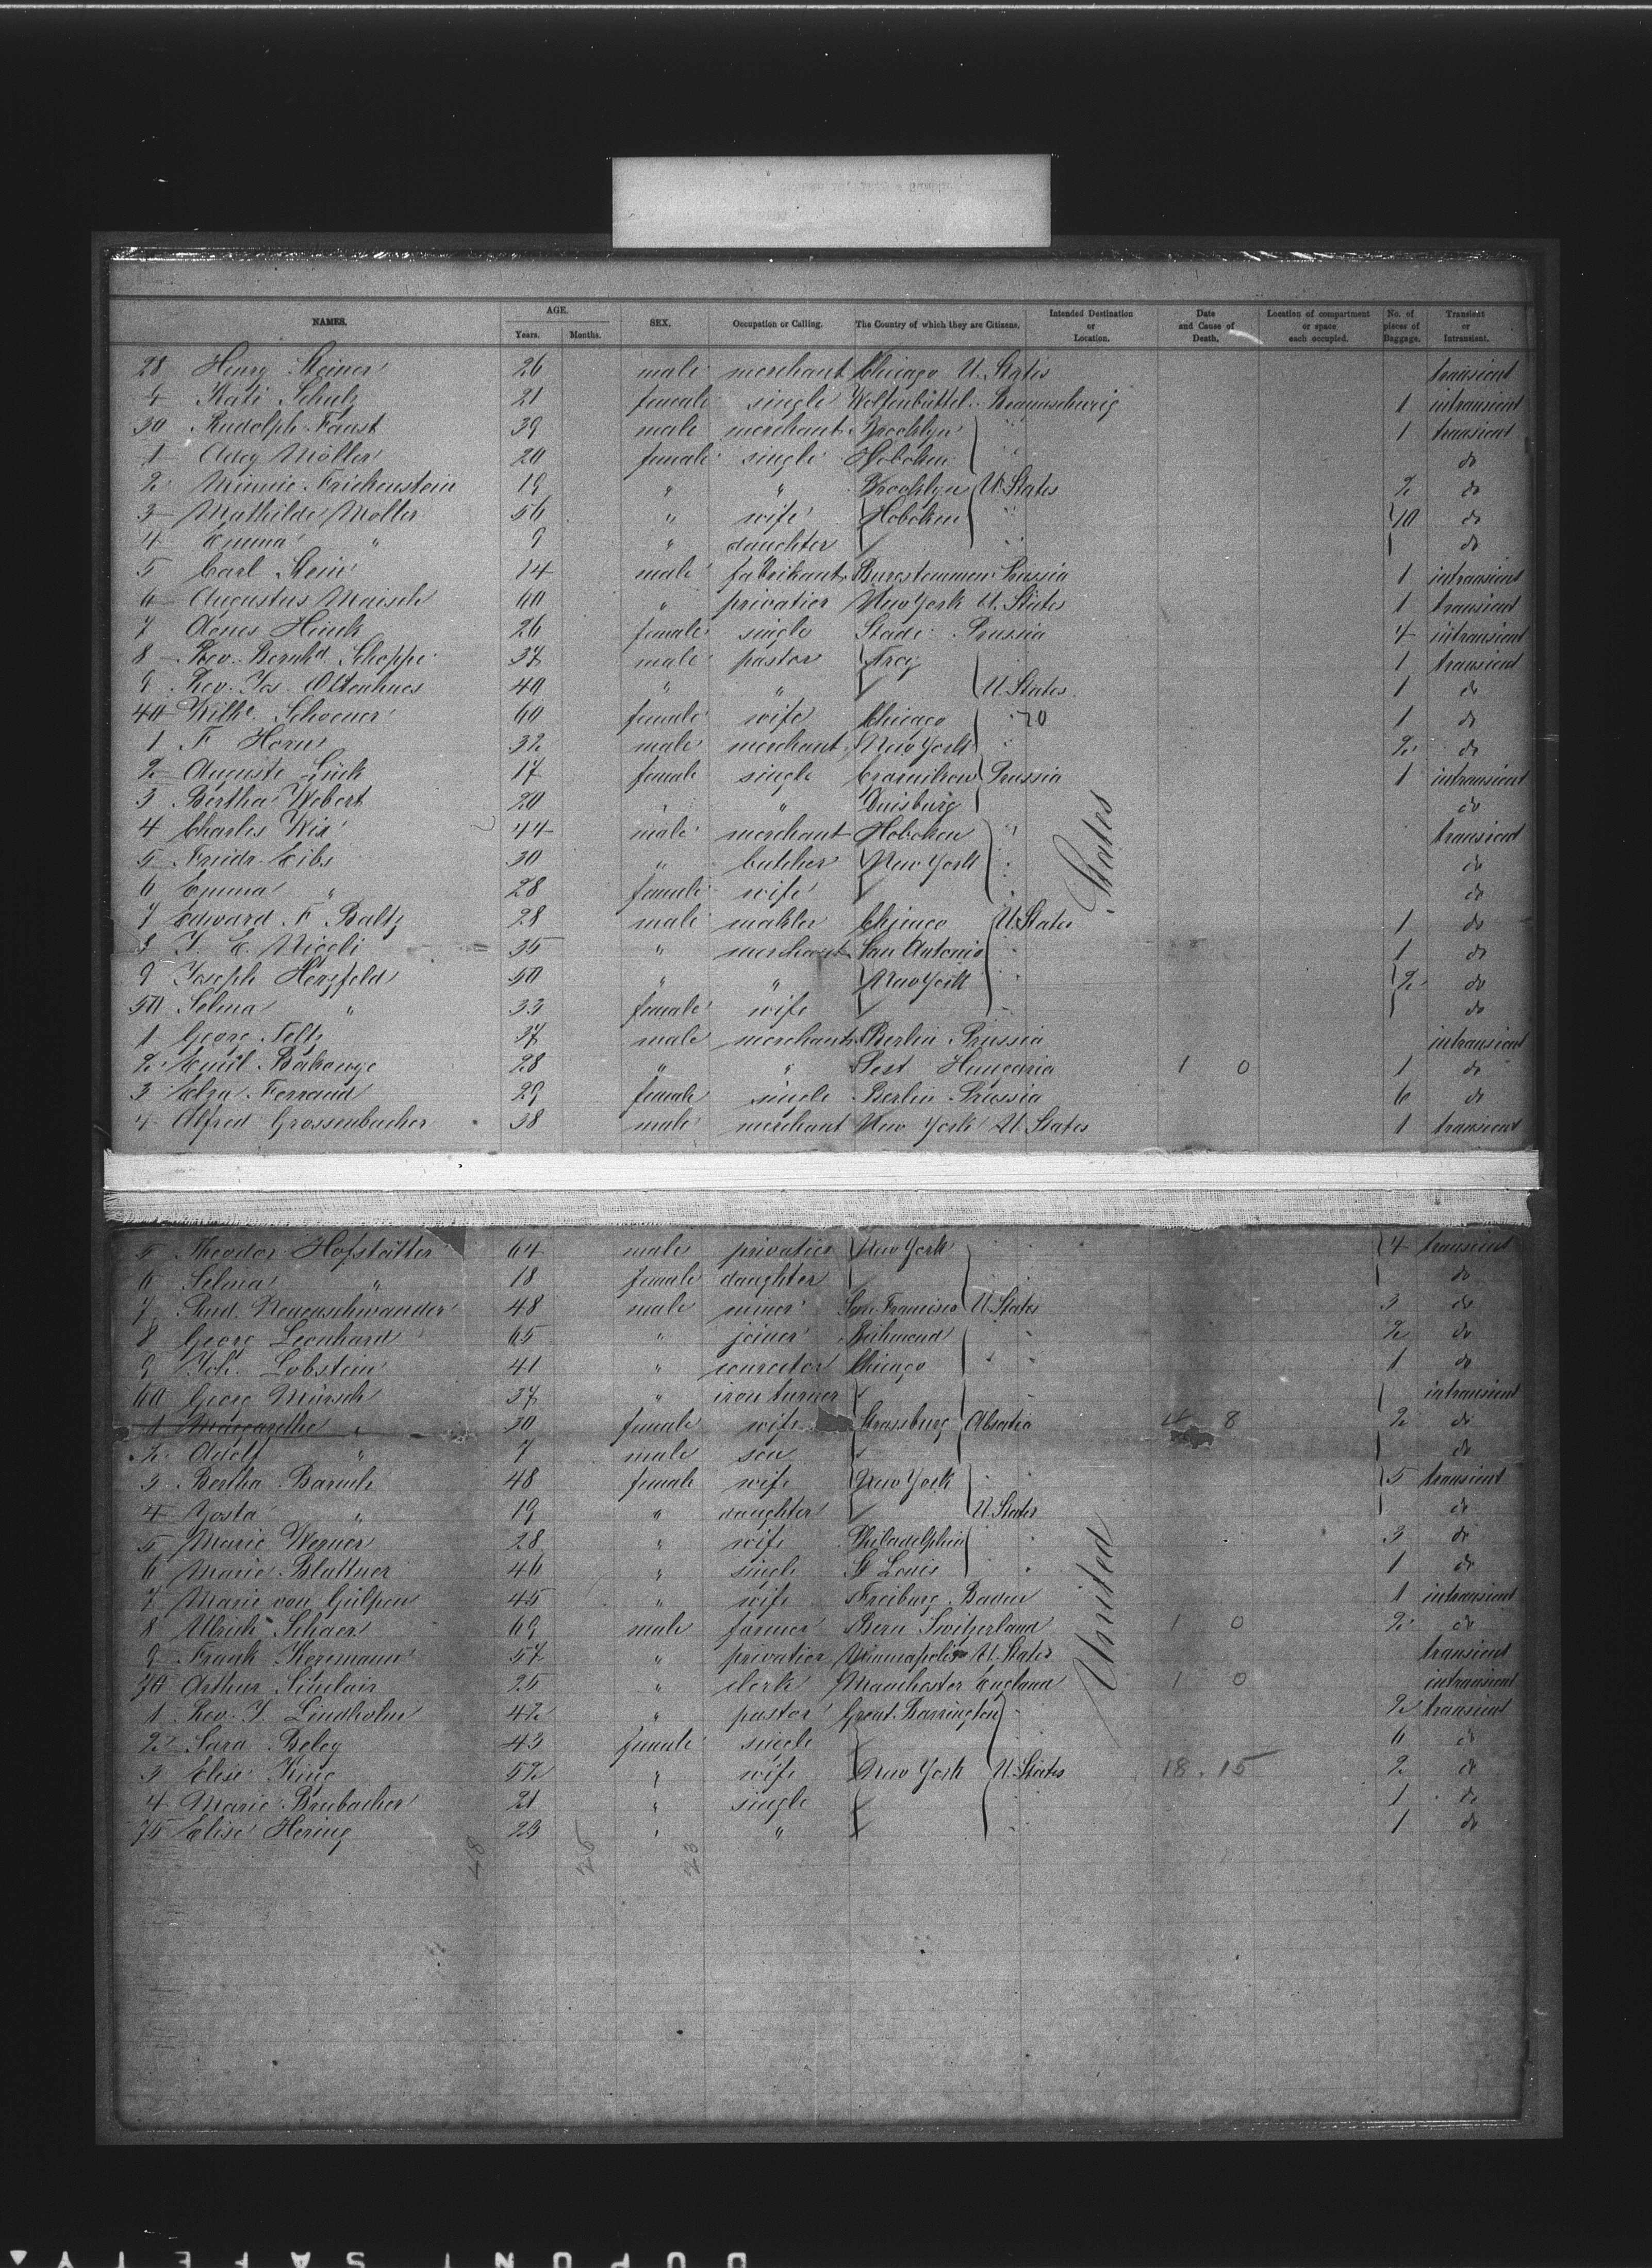 NAMES. AGE. Years. Months. SEX. Occupation or Calling. The Country of which they are Citizens. Intended Destination or Location. Date and Cause of Death. Location of compartment or space each occupied. No. of pieces of Baggage. Transient or Intransient.
28 Henry Steiner 26 male merchant Chicago U. States transient
Kati Schulz 21 female single Wolfenbüttel Braunschweig 1 intransient
30 Rudolph Faust 39 male merchant Brooklyn " 1 transient
1 Möller 20 female single Hoboken " do
2 Minnie Frickenstein 19 " " Brooklyn U. States 2 do
3 Mathilde Moller 56 " wife Hoboken " 10 do
4 Emma " 9 " daughter " do
5 Carl Stein 14 male fabrikant Prussia 1 intransient
6 Augustus Maisch 60 " privatier New York U. States 1 transient
7 Agnes Hinck 26 female single Stade Prussia 4 intransient
8 Rev. Bernhd. Schoppe 37 male pastor Troy 1 transient
9 Rev. Jos. 40 " " U. States 1 do
40 Wilhe. Schoener 60 female wife Chicago 70 1 do
1 F Horn 32 male merchant New York 2 do
2 Auguste Lück 17 female single Prussia 1 intransient
3 Bertha Webert 20 " " Duisburg do
4 Charles Wix 44 male merchant Hoboken " transient
5 Friedr. Eibs 30 " butcher New York do
6 Emma " 28 female wife do
States
7 Edward F Baltz 28 male mahler Chicago U. States 1 do
8 J. E. Nicoli 35 " merchant San Antonio 1 do
9 Joseph Herzfeld 50 " " New York 2 do
50 Selma " 33 female wife do
1 Georg Feltz 37 male merchant Berlin Prussia intransient
2 Emil 28 " " Pest Hungaria 1 0 1 do
3 Elza Ferrand 29 female single Berlin Prussia 6 do
4 Alfred Grossenbacher 38 male merchant New York U. States 1 transient
5 Theodor Hofstätter 64 male privatier New York 4 transient
6 Selma " 18 female daughter do
7 Rud. Neuenschwander 48 male miner San Francisco U. States 3 do
8 Georg Leonhard 65 " joiner Richmond 2 do
9 Joh. Lobstein 41 " Chicago 1 do
60 Georg Mürsch 37 " iron turner intransient
1 Margarethe " 30 female wife Strassburg Alsatia 4 8 2 do
2 Adolf " 7 male son do
3 Bertha Baruch 48 female wife New York 5 transient
4 Yosta " 19 " daughter U. States do
5 Marie Werner 28 " wife Philadelphia 3 do
6 Marie Blattner 46 " single St Louis 1 do
7 Marie von Gülpen 45 " wife Freiburg Baden 1 intransient
8 Ulrich Schaer 69 male farmer Bern Switzerland 1 0 2 do
United
9 Frank 57 " privatier Minneapolis U. States transient
70 Arthur Sinclair 25 " clerk Manchester England 1 0 intransient
1 Rev. J. Lindholm 42 " pastor Great Barrington 2 transient
2 Sara Beley 43 female single 6 do
3 Elise King 52 " wife New York U. States 18. 15 2 do
4 Marie Brubacher 21 " single 1 do
75 Elise Hering 23 " " 1 do
48 25 23
DUPONT SAFETY